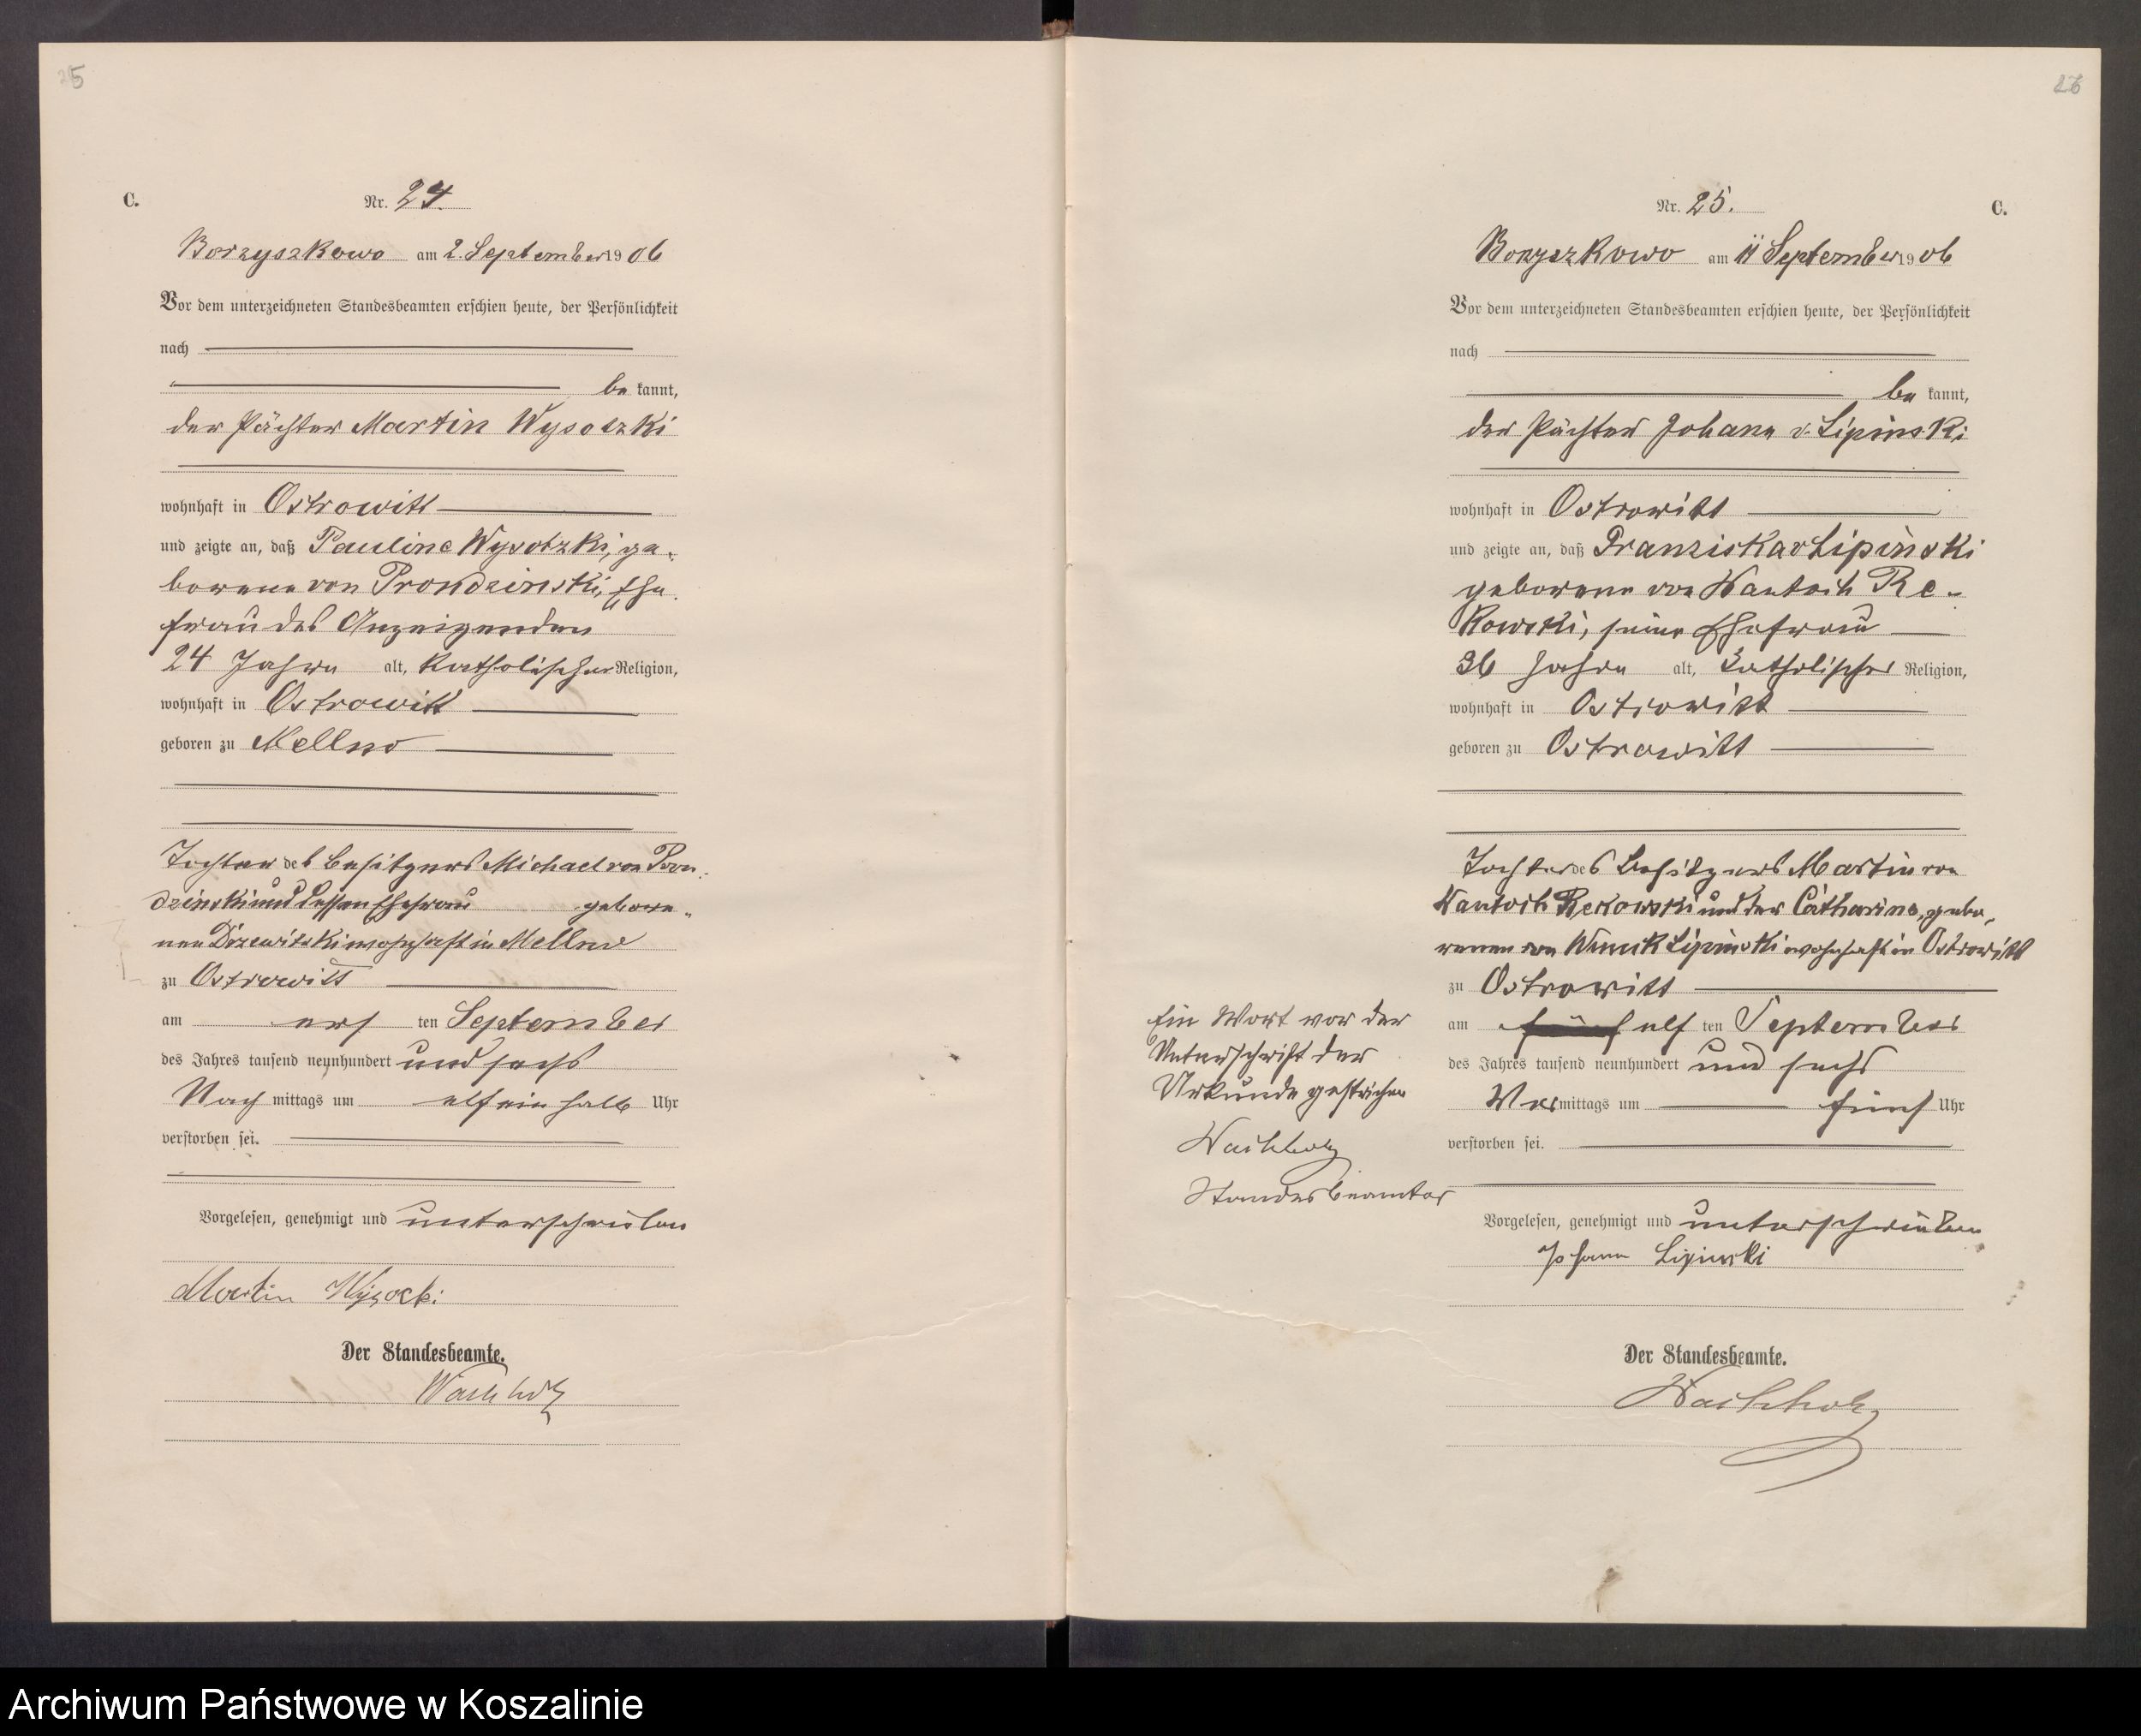 25
C.
Nr. 24.
Borzyszkowo am 2. September 1906
Vor dem unterzeichneten Standesbeamten erschien heute, der Persönlichkeit
nach
be kannt,
der Pächter Martin Wysotzki
wohnhaft in Ostrowitt
und zeigte an, daß Pauline Wysotzki, ge-
borene von Prondzinski, Ehe-
frau des Anzeigenden
24 Jahre alt, katholischer Religion,
wohnhaft in Ostrowitt
geboren zu Mellno
Tochter des Besitzers Michael von Pron-
dzinski und dessen Ehefrau gebore-
nen wohnhaft in Mellno
zu Ostrowitt
am ersten September
des Jahres tausend neunhundert und sechs
Nach mittags um elfeinhalb Uhr
verstorben sei.
Vorgelesen, genehmigt und unterschrieben
Martin Wysocki
Der Standesbeamte.
Wachholz
26
Nr. 25.
C.
Borzyszkowo am 11 September 1906
Vor dem unterzeichneten Standesbeamten erschien heute, der Persönlichkeit
nach
be kannt,
der Pächter Johann v. Lipinski
wohnhaft in Ostrowitt
und zeigte an, daß Franziska Lipinski
geborene von Wantoch Re-
kowski, seine Ehefrau
36 Jahre alt, katholischer Religion,
wohnhaft in Ostrowitt
geboren zu Ostrowitt
Tochter des Besitzers Martin von
Wantoch Rekowski und der Catharina, gebo-
renen von Lipinski wohnhaft in Ostrowitt
zu Ostrowitt
am elf ten September
des Jahres tausend neunhundert und sechs
Vor mittags um fünf Uhr
verstorben sei.
Ein Wort vor der
Unterschrift der
Urkunde gestrichen
Wachholz
Standesbeamter
Vorgelesen, genehmigt und unterschrieben
Johann Lipinski
Der Standesbeamte.
Wachholz
Archiwum Państwowe w Koszalinie